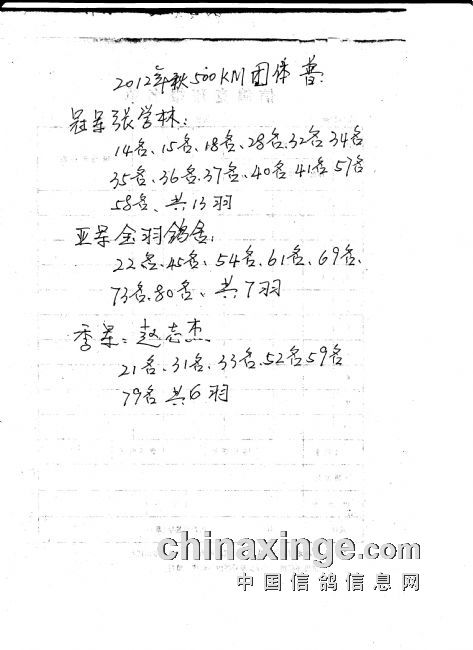 2012年秋500KM团体赛
冠军张学林:
14名、15名、18名、28名、32名34名
35名、36名、37名、40名41名57名
58名、共13羽
亚军金羽鸽舍:
22名、45名、54名、61名、69名、
73名、80名、共7羽
季军:赵志杰
21名、31名、33名、52名59名
79名共6羽
chinaxinge.com
中国信鸽信息网